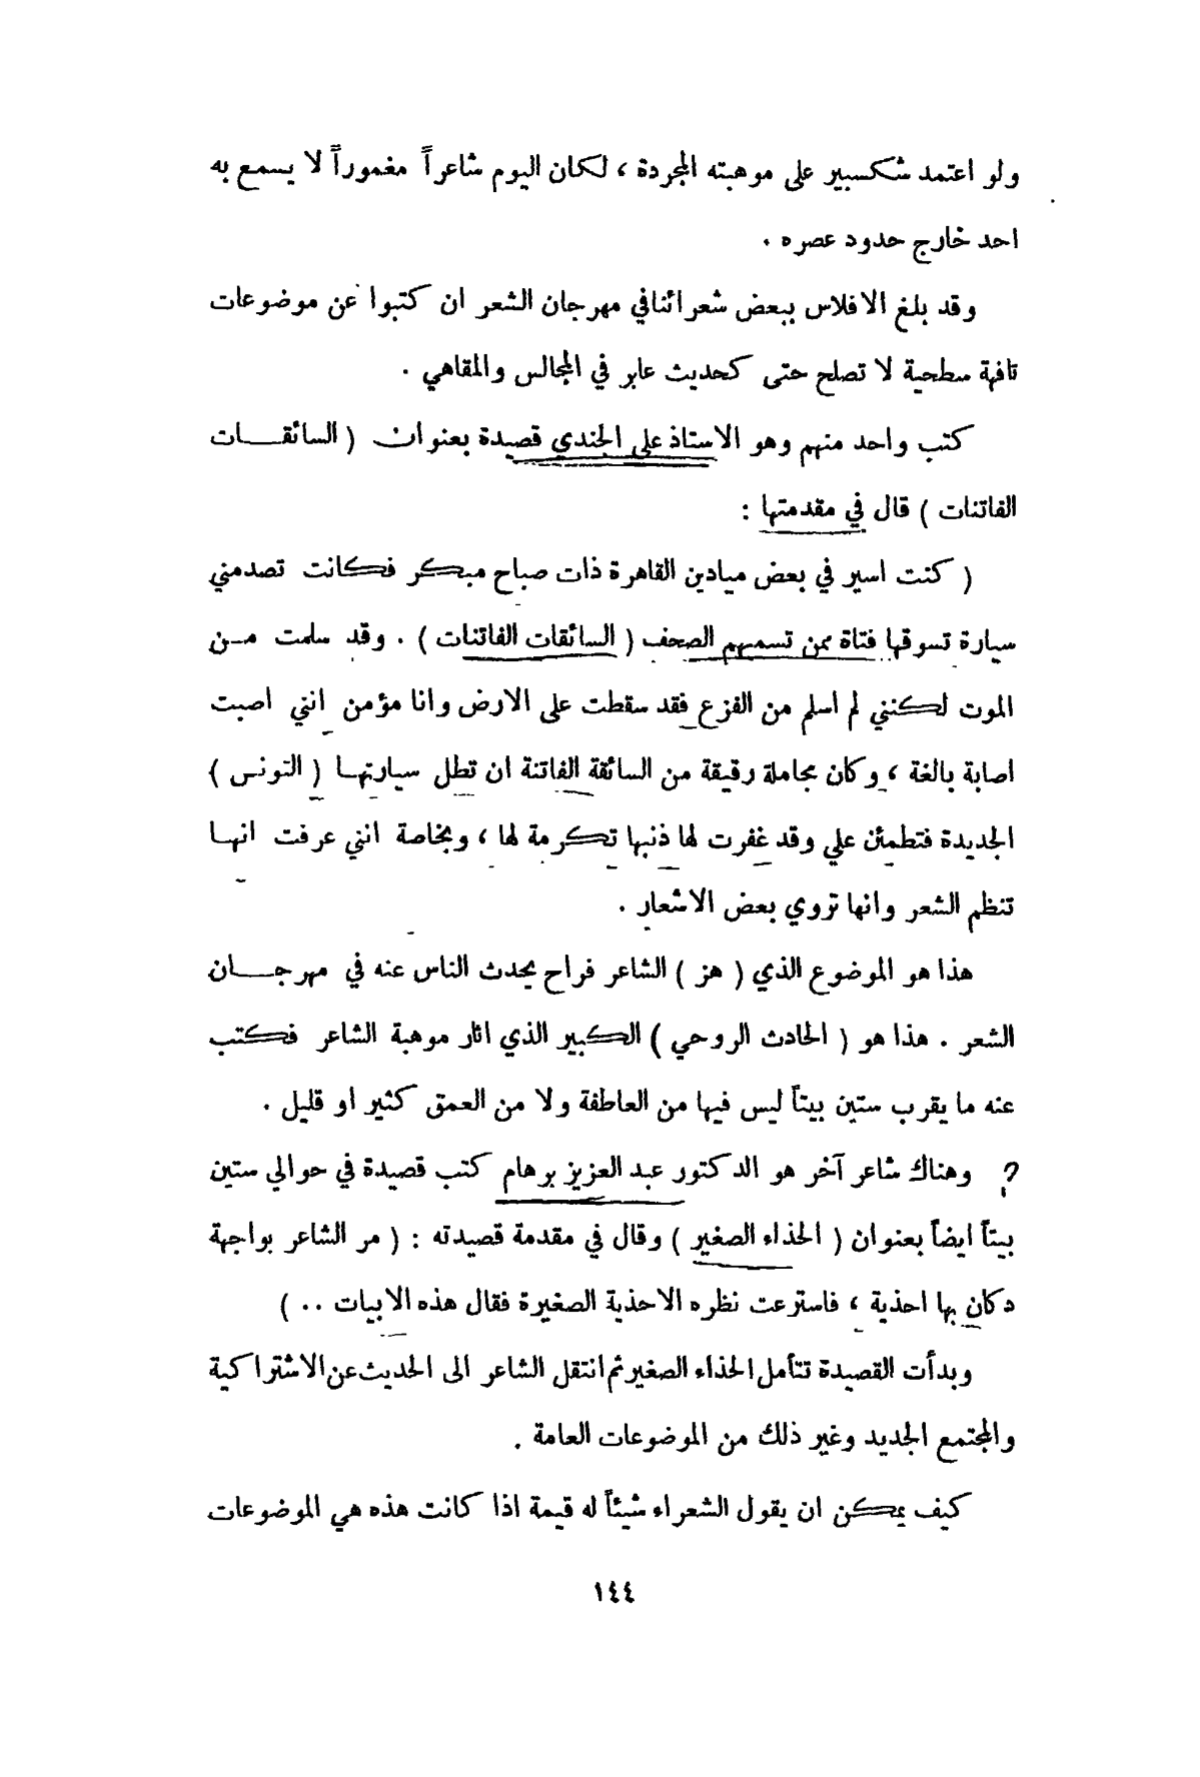 ولو اعتمد شكسبير على موهبته المجردة ، لكان اليوم شاعراً مغموراً لا يسمع به
احد خارج حدود عصره .
وقد بلغ الافلاس ببعض شعرائنافي مهرجان الشعر ان كتبوا عن موضوعات
تافهة سطحية لا تصلح حتى كحديث عابر في المجالس والمقاهي .
كتب واحد منهم وهو الاستاذ علي الجندي قصيدة بعنوان ( السائقــات
الفاتنات ) قال في مقدمتها :
( كنت اسير في بعض ميادين القاهرة ذات صباح مبكر فكانت تصدمني
سيارة تسوقها فتاة ممن تسميهم الصحف ( السائقات الفاتنات ) . وقد سلمت مـن
الموت لكنني لم اسلم من الفزع فقد سقطت على الارض وانا مؤمن انني اصبت
اصابة بالغة ، وكان مجاملة رقيقة من السائقة الفاتنة ان تطل سيارتهـا ( التونس )
الجديدة فتطمئن علي وقد غفرت لها ذنبها تكرمة لها ، وبخاصة انني عرفت انهـا
تنظم الشعر وانها تروي بعض الاشعار .
هذا هو الموضوع الذي ( هز ) الشاعر فراح يحدث الناس عنه في مهرجــان
الشعر . هذا هو ( الحادث الروحي ) الكبير الذي اثار موهبة الشاعر فكتب
عنه ما يقرب ستين بيتاً ليس فيها من العاطفة ولا من العمق كثير او قليل .
؟ وهناك شاعر آخر هو الدكتور عبد العزيز برهام كتب قصيدة في حوالي ستين
بيتاً ايضاً بعنوان ( الحذاء الصغير ) وقال في مقدمة قصيدته : ( مر الشاعر بواجهة
دكان بها احذية ، فاسترعت نظره الاحذية الصغيرة فقال هذه الابيات .. )
وبدأت القصيدة تتأمل الحذاء الصغير ثم انتقل الشاعر الى الحديث عن الاشتراكية
والمجتمع الجديد وغير ذلك من الموضوعات العامة .
كيف يمكن ان يقول الشعراء شيئاً له قيمة اذا كانت هذه هي الموضوعات
١٤٤